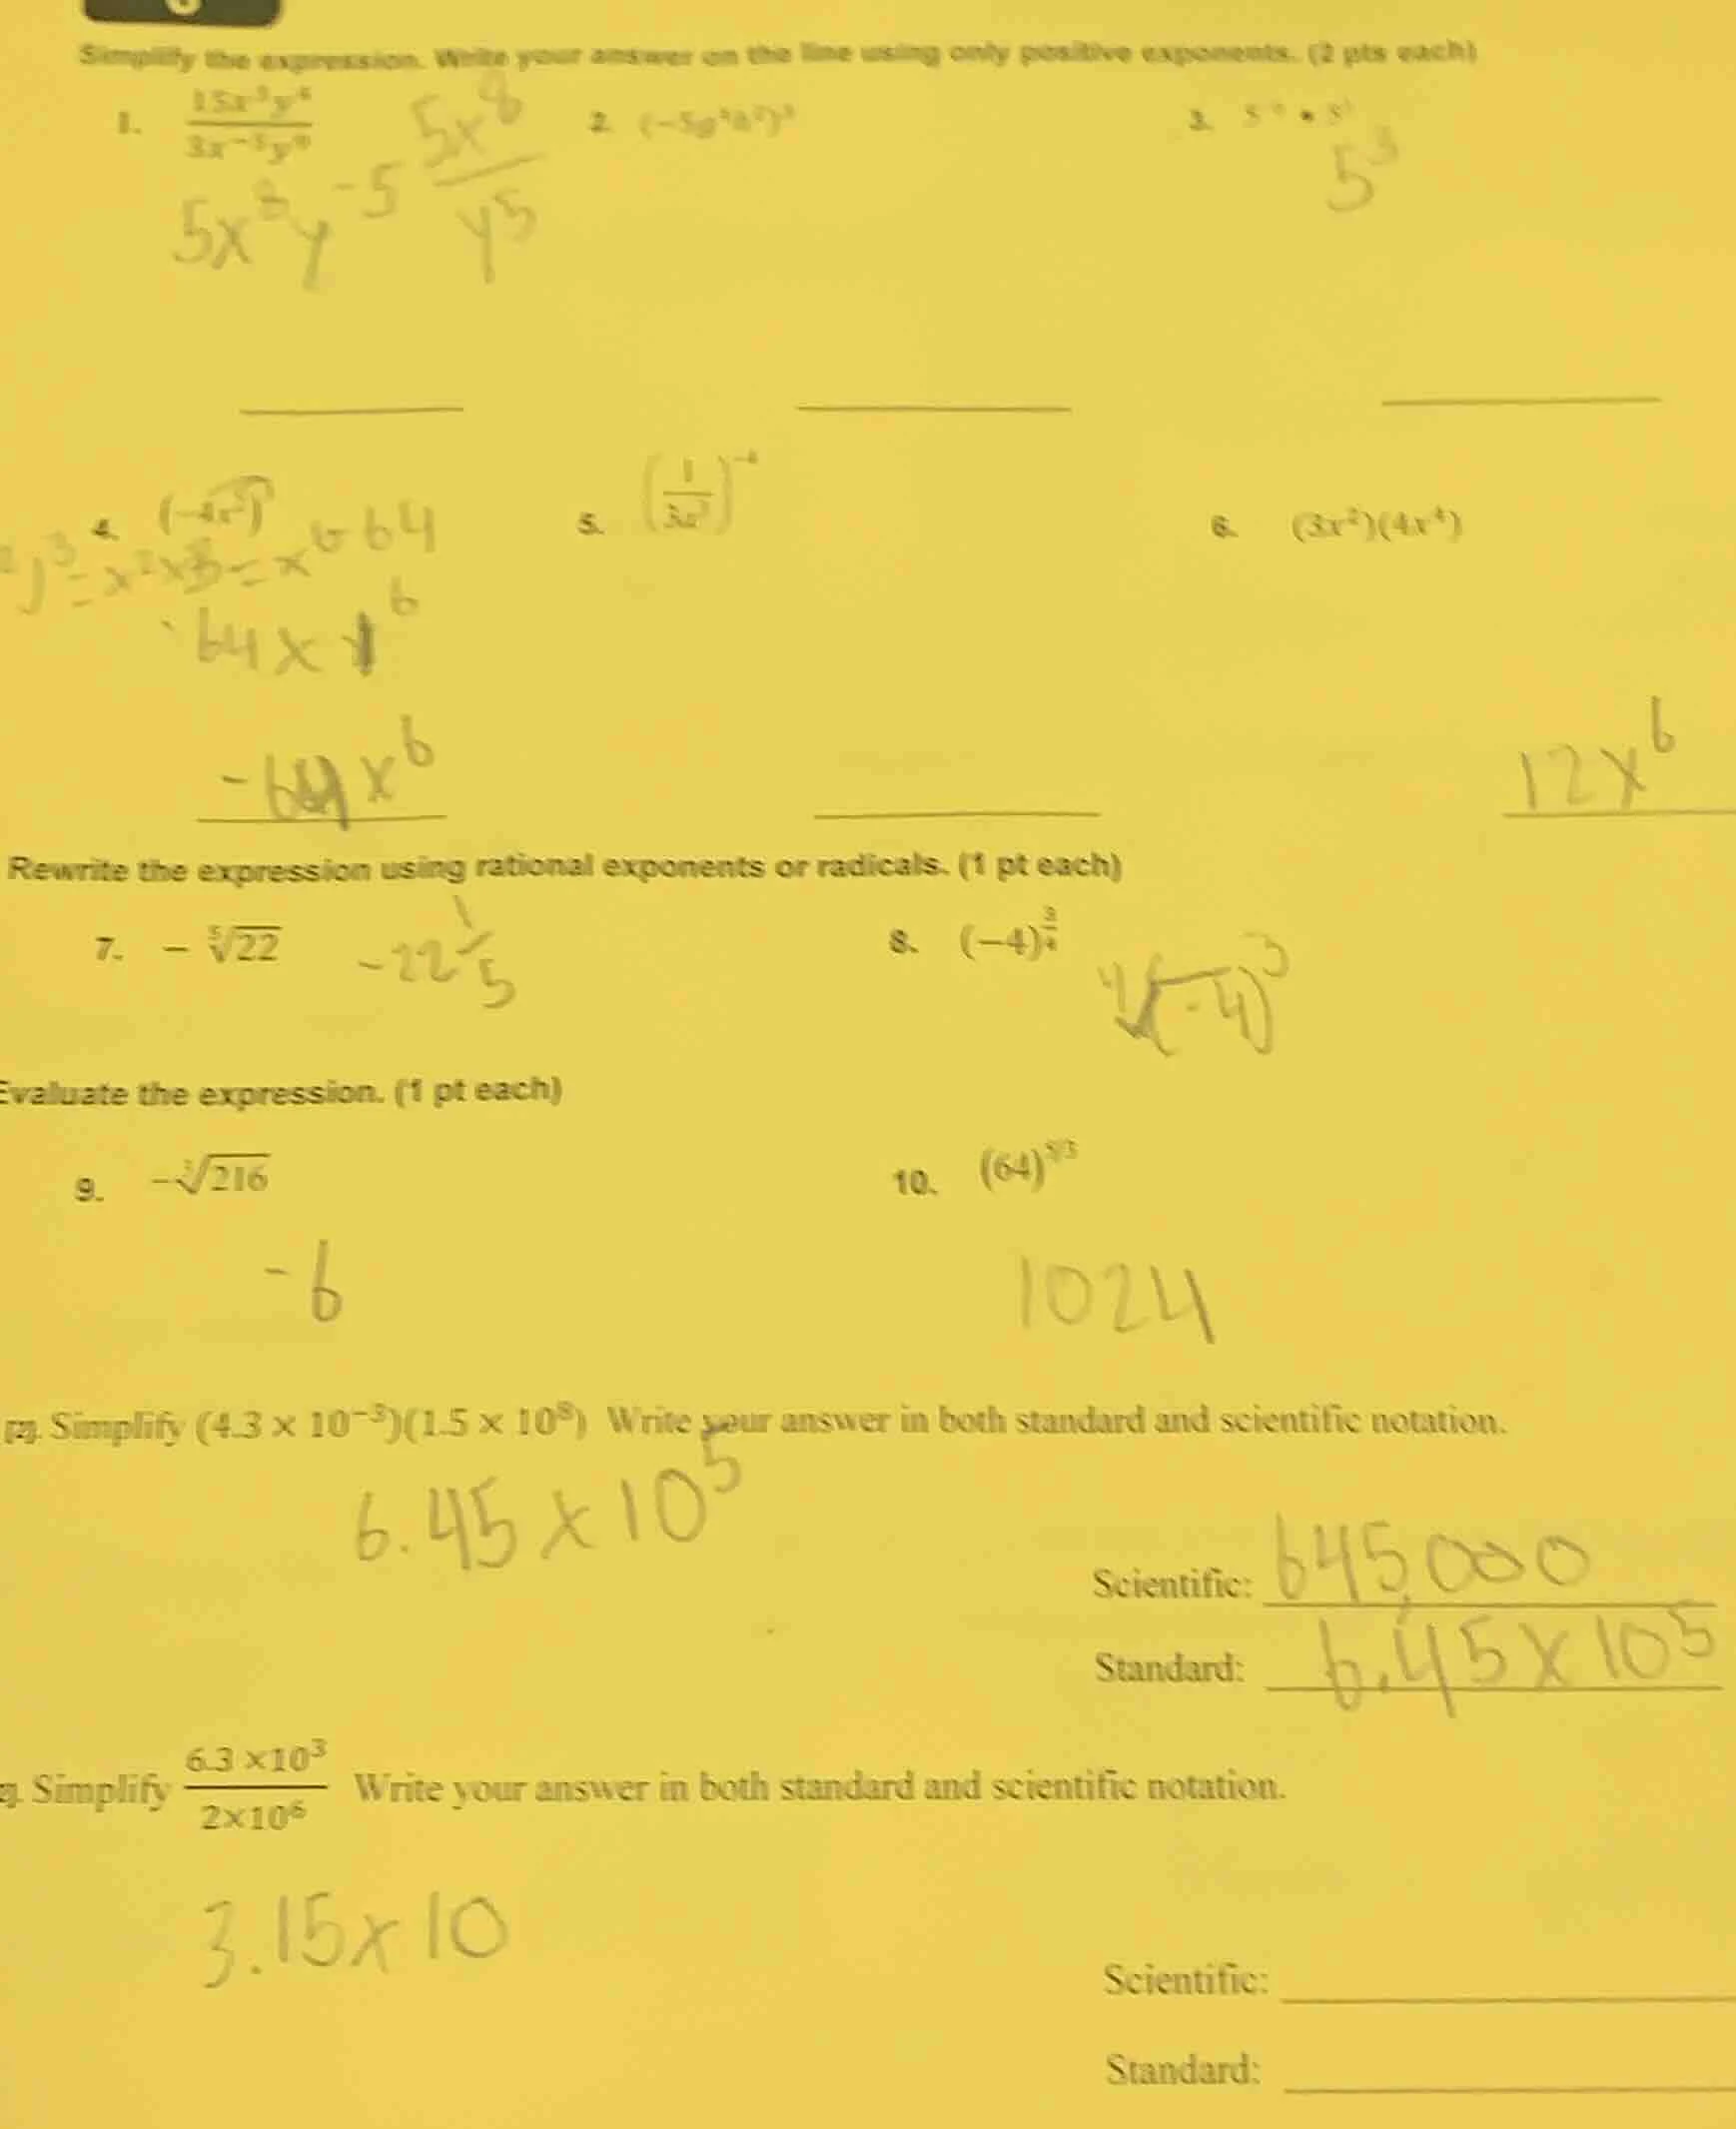 Simplify the expression. Write your answer on the line using only positive exponents. (2 pts each)
1. 5x⁸/y⁵ 2. 3.
5x⁸y⁻⁵
5³
4. 64 5. 6. (3x²)(4x⁴)
)³ = x²ˣ³ = x⁶
-64x⁶
-64x⁶
12x⁶
Rewrite the expression using rational exponents or radicals. (1 pt each)
7. − ⁵√22 -22^(1/5) 8. (−4)^(3/4) ⁴√(-4)³
Evaluate the expression. (1 pt each)
9. −³√216 10. (64)^(5/3)
-6 1024
Simplify (4.3 × 10⁻³)(1.5 × 10⁸) Write your answer in both standard and scientific notation.
6.45 x 10⁵
Scientific: 645,000
Standard: 6.45 x 10⁵
Simplify 6.3 ×10³/2×10⁶ Write your answer in both standard and scientific notation.
3.15 x 10
Scientific:
Standard: